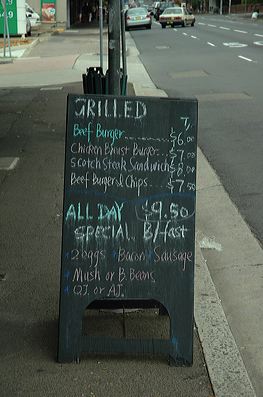 GRILLED
Beef Burger............ $6.00
Chicken Breast Burger... $7.00
Scotch Steak Sandwich $8.00
Beef Burger & Chips..... $7.50
ALL DAY $9.50
SPECIAL B/fast
2 eggs Bacon Sausage
Mush or B. Beans
OJ. or AJ.